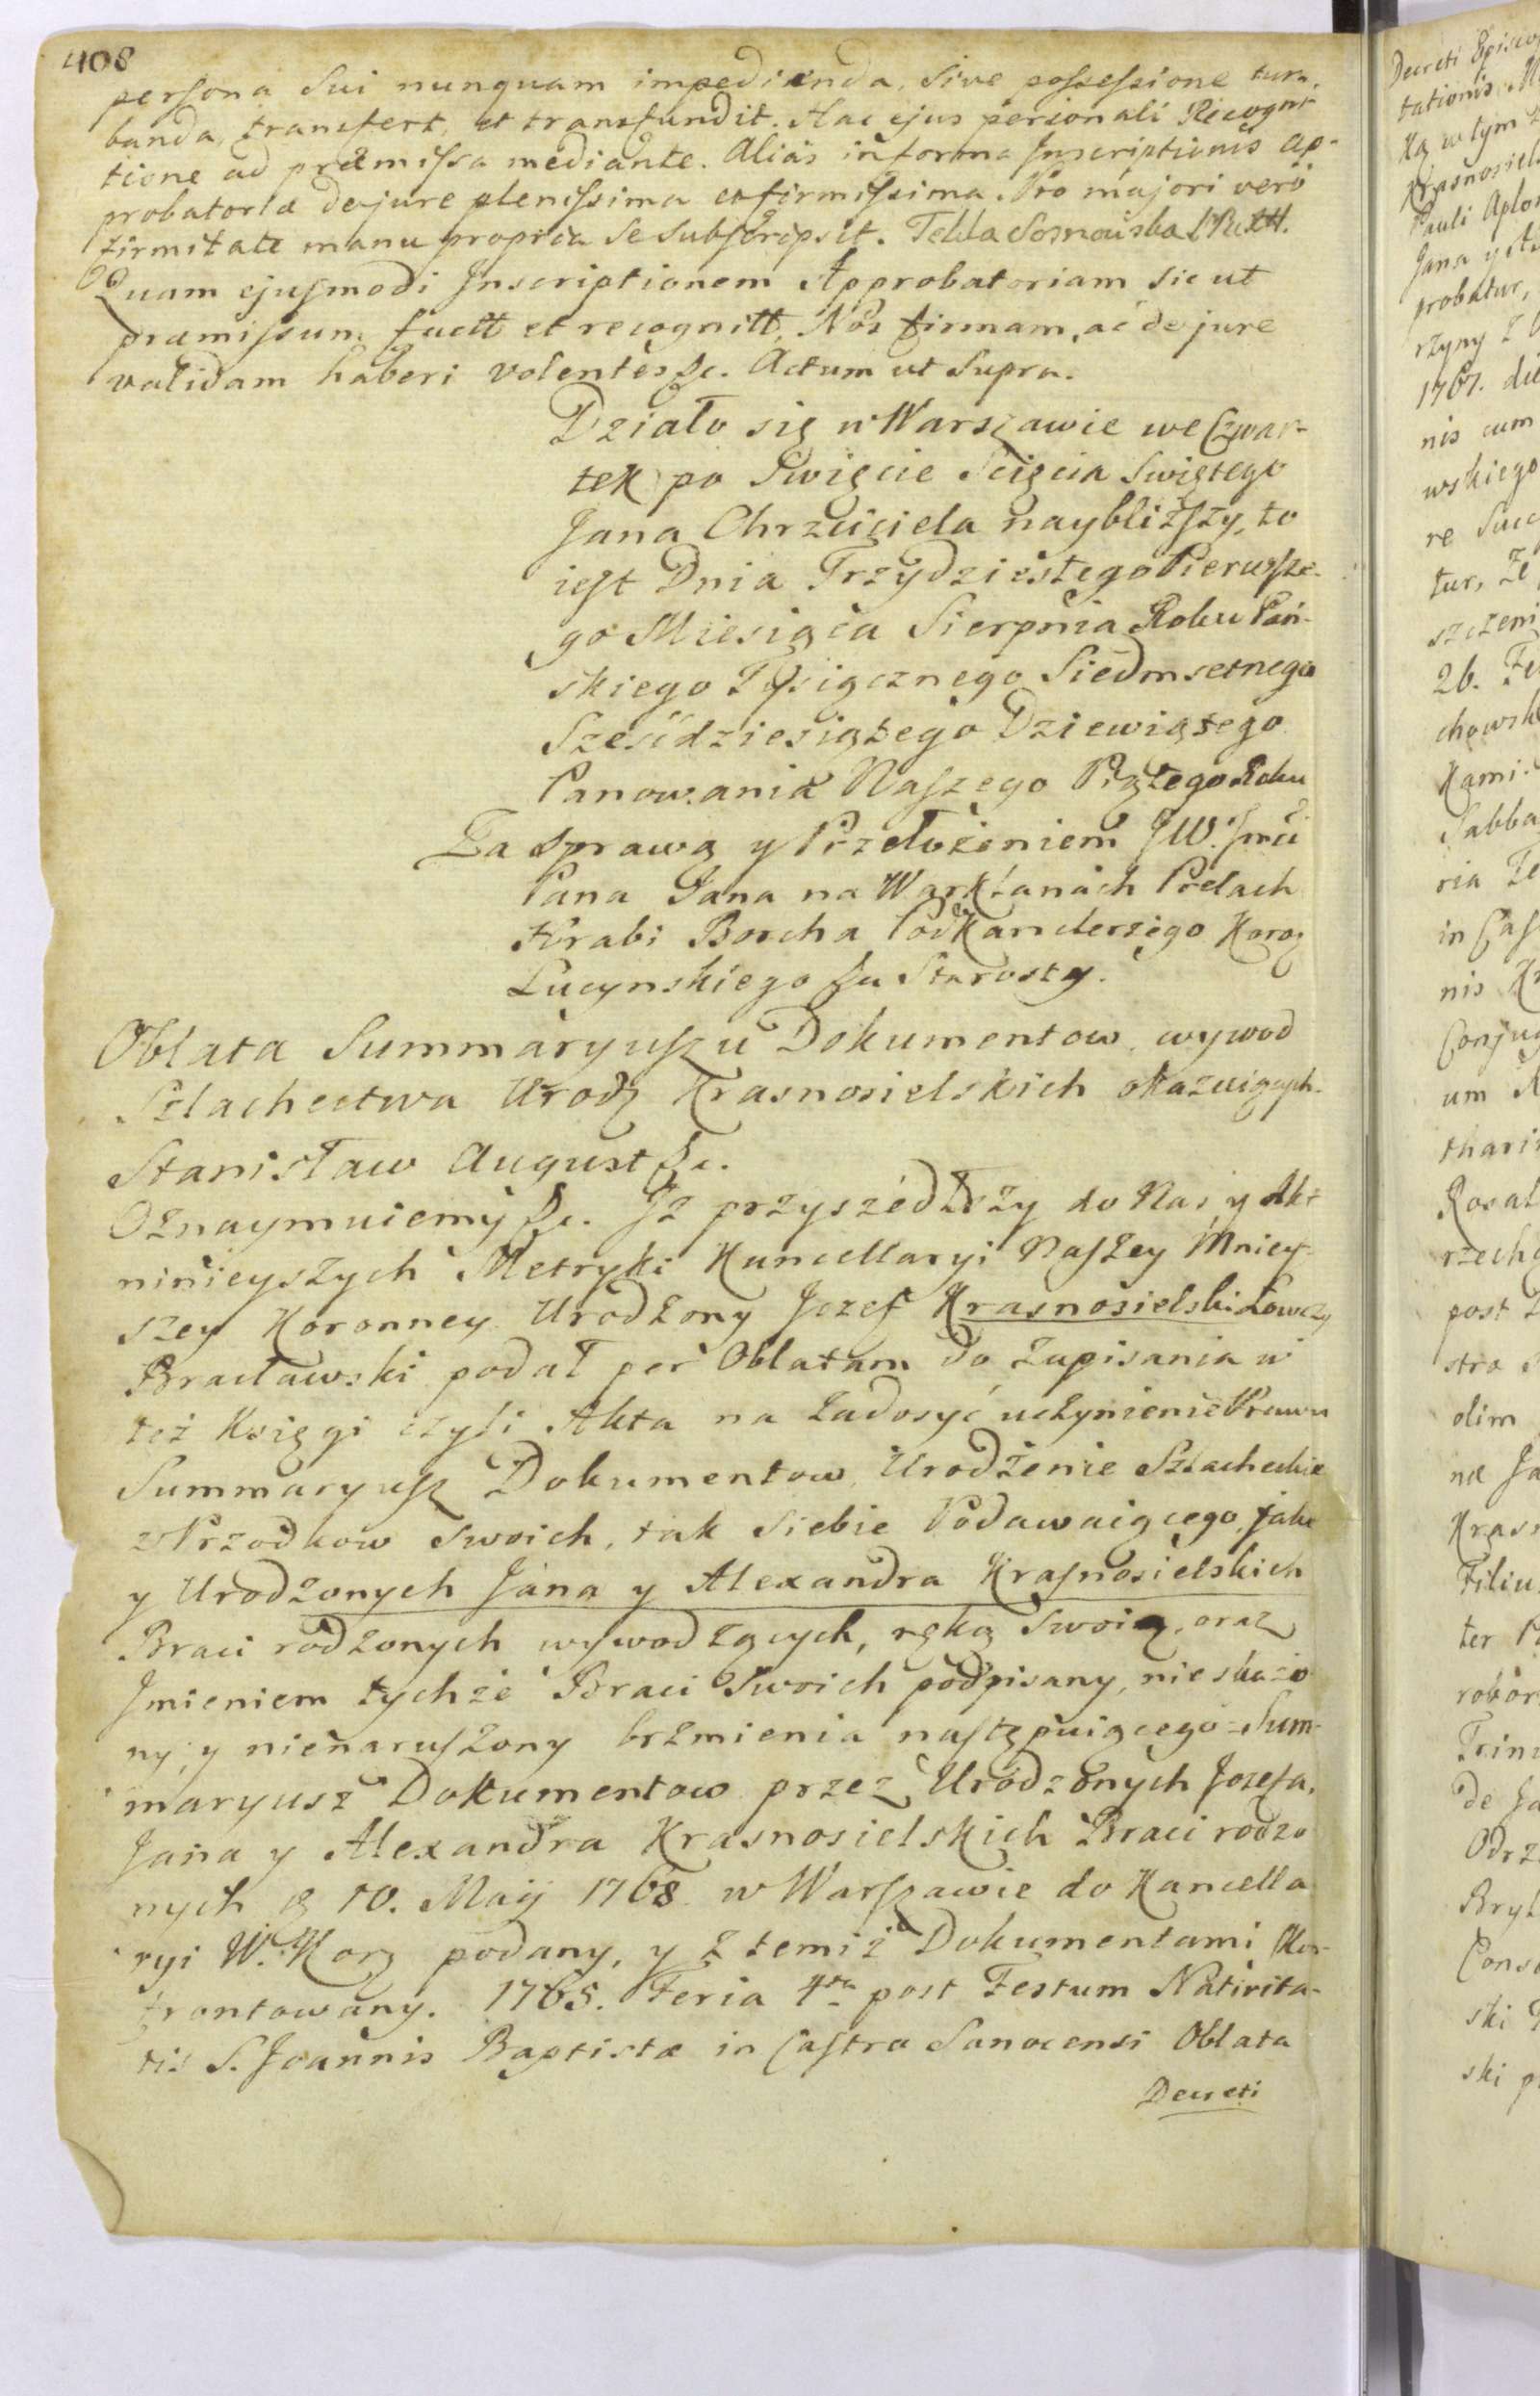 408
persona sui nunquam impedienda, sive possessione tur-
banda, transfert, et transfundit. Hac ejus personali Recogni-
tione ad præmissa mediante. Alias in forma Inscriptionis Ap-
probatoriæ de jure plenissima et firmissima. Pro majori vero
firmitate manu propria se subscripsit. Tekla
Quam ejusmodi Inscriptionem Approbatoriam sic ut
præmissum fuctt et recognitt, Nos firmam, ac de jure
validam haberi volentes &c. Actum ut Supra.
Działo się w Warszawie we Czwar-
tek po Swięcie Scięcia Swiętego
Jana Chrzciciela naybliższy, to
iest Dnia Trzydziestego Pierwsze-
go Miesiąca Sierpnia Roku Pań-
skiego Tysiącznego Siedmsetnego
Sześćdziesiątego Dziewiątego
Panowania Naszego Piątego Roku
Za sprawą y Przełożeniem JW. Jmći
Pana Jana na Warklanach Prelach
Hrabi Borcha Podkanclerzego Korog
Lucynskiego &c Starosty.
Oblata Summaryuszu Dokumentow, wywod
Szlachectwa Urodz Krasnosielskich okazuiących.
Stanisław August &c.
Oznaymuiemy &c. Iż przyszedłszy do Nas y Akt
ninieyszych Metryki Kancellaryi Naszey Mniey-
szey Koronney Urodzony Jozef Krasnosielski Łowczy
Bracławski podał per Oblatam do zapisania w
też Księgi czyli Akta na zadosyć uczynienie Prawu
Summaryusz Dokumentow, Urodzenie Szlacheckie
z Przodkow swoich, tak siebie Podawaiącego, jako
y Urodzonych Jana y Alexandra Krasnosielskich
Braci rodzonych wywodzących, ręką swoią, oraz
Imieniem tychże Braci swoich podpisany, nieskażo
ny, y nienaruszony brzmienia następuiącego = Sum-
maryusz Dokumentow przez Urodzonych Jozefa,
Jana y Alexandra Krasnosielskich Braci rodzo
nych g 10. Maij 1768 w Warszawie do Kancella
ryi W. Korg podany, y z temiż Dokumentami Kon-
frontowany. 1765. Feria 4ta post Festum Nativita-
tis S. Joannis Baptistæ in Castro Sanocensi Oblata
Decreti